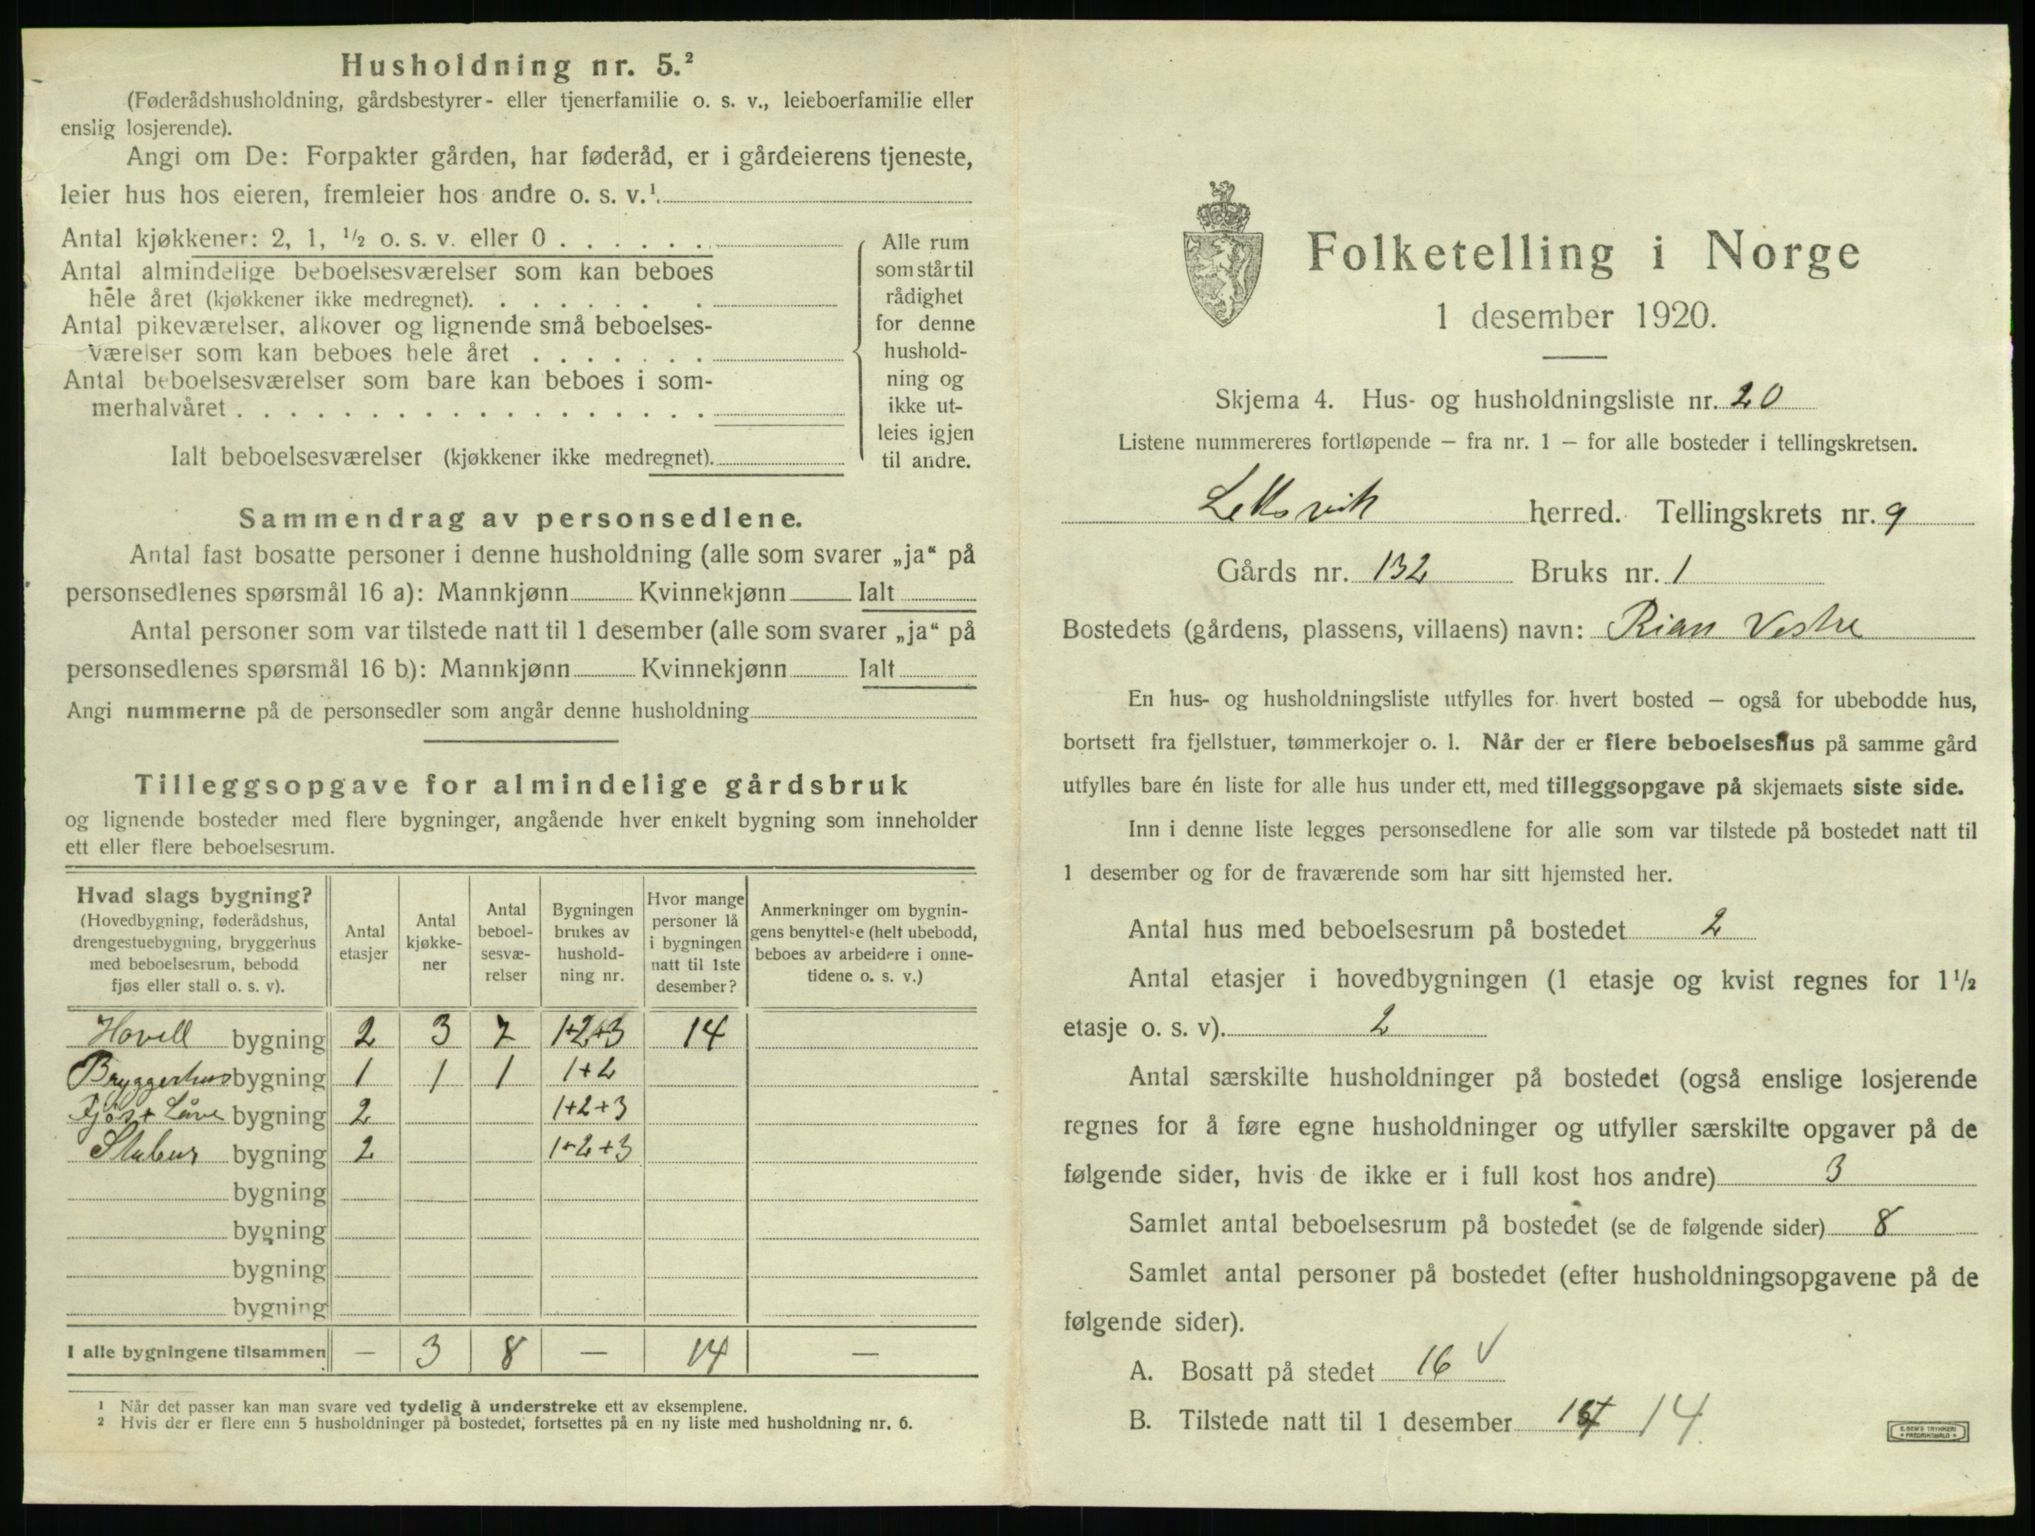 Husholdning nr. 5.²
(Føderådshusholdning, gårdsbestyrer- eller tjenerfamilie o. s. v., leieboerfamilie eller
enslig losjerende).
Angi om De: Forpakter gården, har føderåd, er i gårdeierens tjeneste,
leier hus hos eieren, fremleier hos andre o. s. v.¹.
Antal kjøkkener: 2, 1, ½ o. s. v. eller 0
Antal almindelige beboelsesværelser som kan beboes
hele året (kjøkkener ikke medregnet).
Antal pikeværelser, alkover og lignende små beboelses-
værelser som kan beboes hele året
Antal beboelsesværelser som bare kan beboes i som-
merhalvåret
Ialt beboelsesværelser (kjøkkener ikke medregnet).
Alle rum
som står til
rådighet
for denne
hushold-
ning og
ikke ut-
leies igjen
til andre.
Sammendrag av personsedlene.
Antal fast bosatte personer i denne husholdning (alle som svarer „ja“ på
personsedlenes spørsmål 16 a): Mannkjønn Kvinnekjønn Ialt
Antal personer som var tilstede natt til 1 desember (alle som svarer „ja“ på
personsedlenes spørsmål 16 b): Mannkjønn Kvinnekjønn Ialt
Angi nummerne på de personsedler som angår denne husholdning
Tilleggsopgave for almindelige gårdsbruk
og lignende bosteder med flere bygninger, angående hver enkelt bygning som inneholder
ett eller flere beboelsesrum.
Hvad slags bygning?
(Hovedbygning, føderådshus,
drengestuebygning, bryggerhus
med beboelsesrum, bebodd
fjøs eller stall o. s. v).
Antal
etasjer
Antal
kjøkke-
ner
Antal
beboel-
sesvæ-
relser
Bygningen
brukes av
hushold-
ning nr.
Hvor mange
personer lå
i bygningen
natt til 1ste
desember?
Anmerkninger om bygnin-
gens benyttelse (helt ubebodd,
beboes av arbeidere i onne-
tidene o. s. v.)
Hovell bygning 2 3 7 1+2+3 14
Bryggerhus bygning 1 1 1 1+2
Fjøs + Låve bygning 2 1+2+3
Stabur bygning 2 1+2+3
bygning
bygning
bygning
bygning
I alle bygningene tilsammen — 3 8 — 14 —
¹ Når det passer kan man svare ved tydelig å understreke ett av eksemplene.
² Hvis der er flere enn 5 husholdninger på bostedet, fortsettes på en ny liste med husholdning nr. 6.
Folketelling i Norge
1 desember 1920.
Skjema 4. Hus- og husholdningsliste nr. 20
Listene nummereres fortløpende – fra nr. 1 – for alle bosteder i tellingskretsen.
Leksvik herred. Tellingskrets nr. 9
Gårds nr. 132 Bruks nr. 1
Bostedets (gårdens, plassens, villaens) navn: Rian Vestre
En hus- og husholdningsliste utfylles for hvert bosted – også for ubebodde hus,
bortsett fra fjellstuer, tømmerkojer o. l. Når der er flere beboelseshus på samme gård
utfylles bare én liste for alle hus under ett, med tilleggsopgave på skjemaets siste side.
Inn i denne liste legges personsedlene for alle som var tilstede på bostedet natt til
1 desember og for de fraværende som har sitt hjemsted her.
Antal hus med beboelsesrum på bostedet 2
Antal etasjer i hovedbygningen (1 etasje og kvist regnes for 1½
etasje o. s. v). 2
Antal særskilte husholdninger på bostedet (også enslige losjerende
regnes for å føre egne husholdninger og utfyller særskilte opgaver på de
følgende sider, hvis de ikke er i full kost hos andre) 3
Samlet antal beboelsesrum på bostedet (se de følgende sider) 8
Samlet antal personer på bostedet (efter husholdningsopgavene på de
følgende sider).
A. Bosatt på stedet 16 √
B. Tilstede natt til 1 desember 14